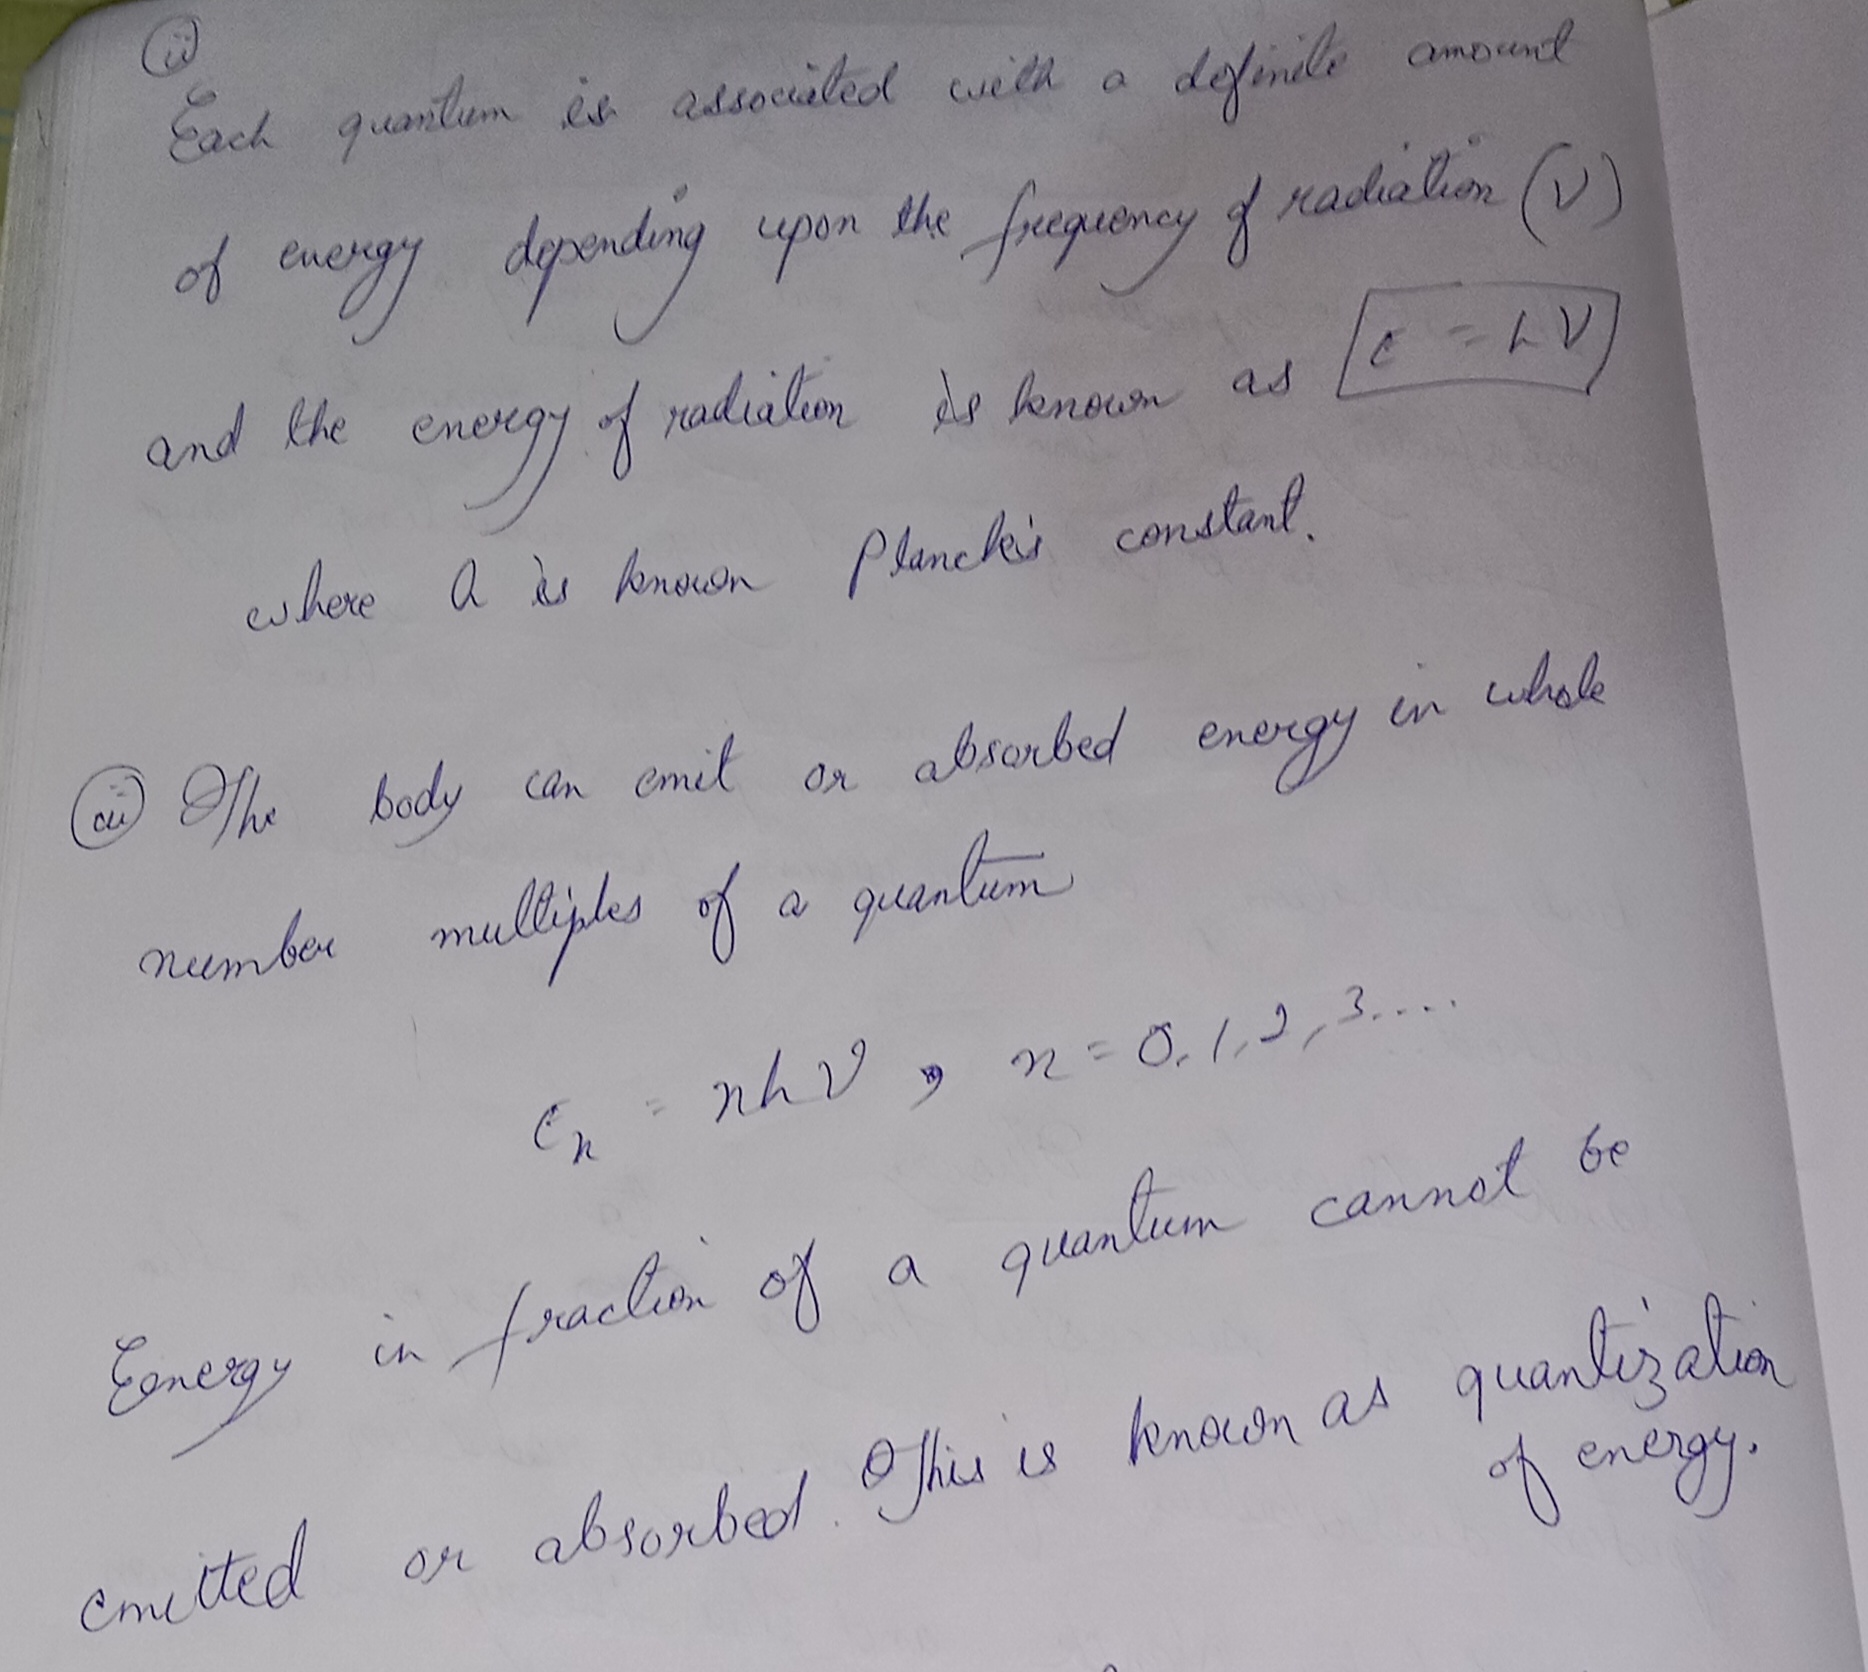 (ii)
Each quantum is associated with a definite amount
of energy depending upon the frequency of radiation (ν)
and the energy of radiation is known as ε = hν
where h is known Planck's constant.
(iii) The body can emit or absorbed energy in whole
number multiples of a quantum
εn = nhν, n = 0, 1, 2, 3....
Eenergy in fraction of a quantum cannot be
emitted or absorbed. This is known as quantization
of energy.